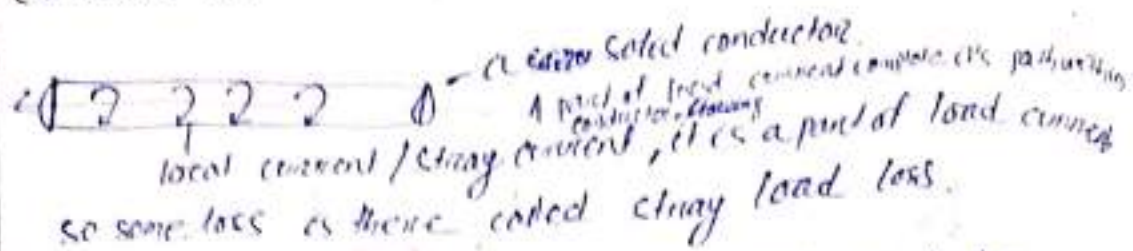 a solid conductor.
A part of load current complete its path within
conductor
local current / stray current, it is a part of load current
so some loss is there called stray load loss.